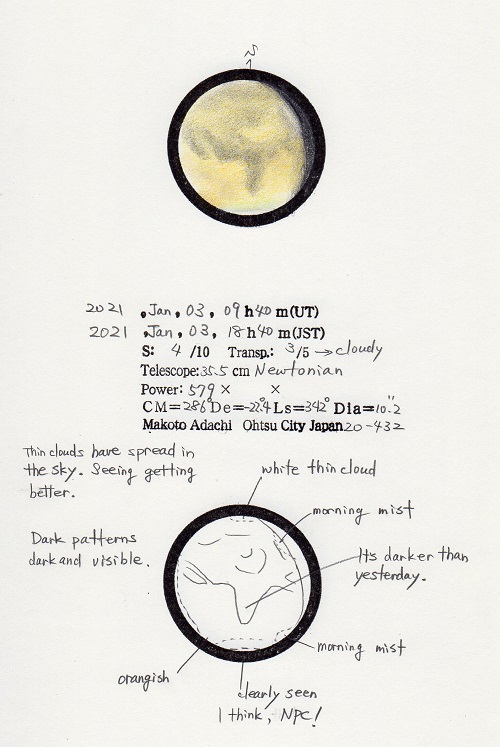 S
2021 , Jan, 03, 09 h 40 m (UT)
2021 , Jan, 03, 18 h 40 m (JST)
S: 4 /10 Transp.: 3/5 → cloudy
Telescope: 35.5 cm Newtonian
Power: 579 × ×
CM=286° De=-22.4 Ls=342° Dia=10".2
Makoto Adachi Ohtsu City Japan 20-432
Thin clouds have spread in
the sky. Seeing getting
better.
white thin cloud
morning mist
Dark patterns
dark and visible.
It's darker than
yesterday.
morning mist
orangish
clearly seen
I think, NPC!